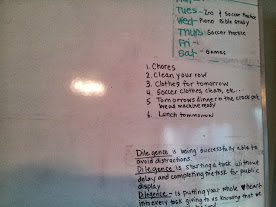 Tues- Zoo & Soccer Practice
Wed- Piano Bible Study
Thurs Soccer Practice
Fri-
Sat- Games
1. Chores
2. Clean your row
3. Clothes for tomorrow
4. Soccer clothes, chair, etc...
5 Tomorrows dinner in the crock pot,
bread machine ready
6. Lunch tommorrow
Diligence is being successfully able to
avoid distractions.
Diligence is starting a task without
delay and completing the task for public
display
Diligence- is putting your whole heart
into every task giving to us knowing that we